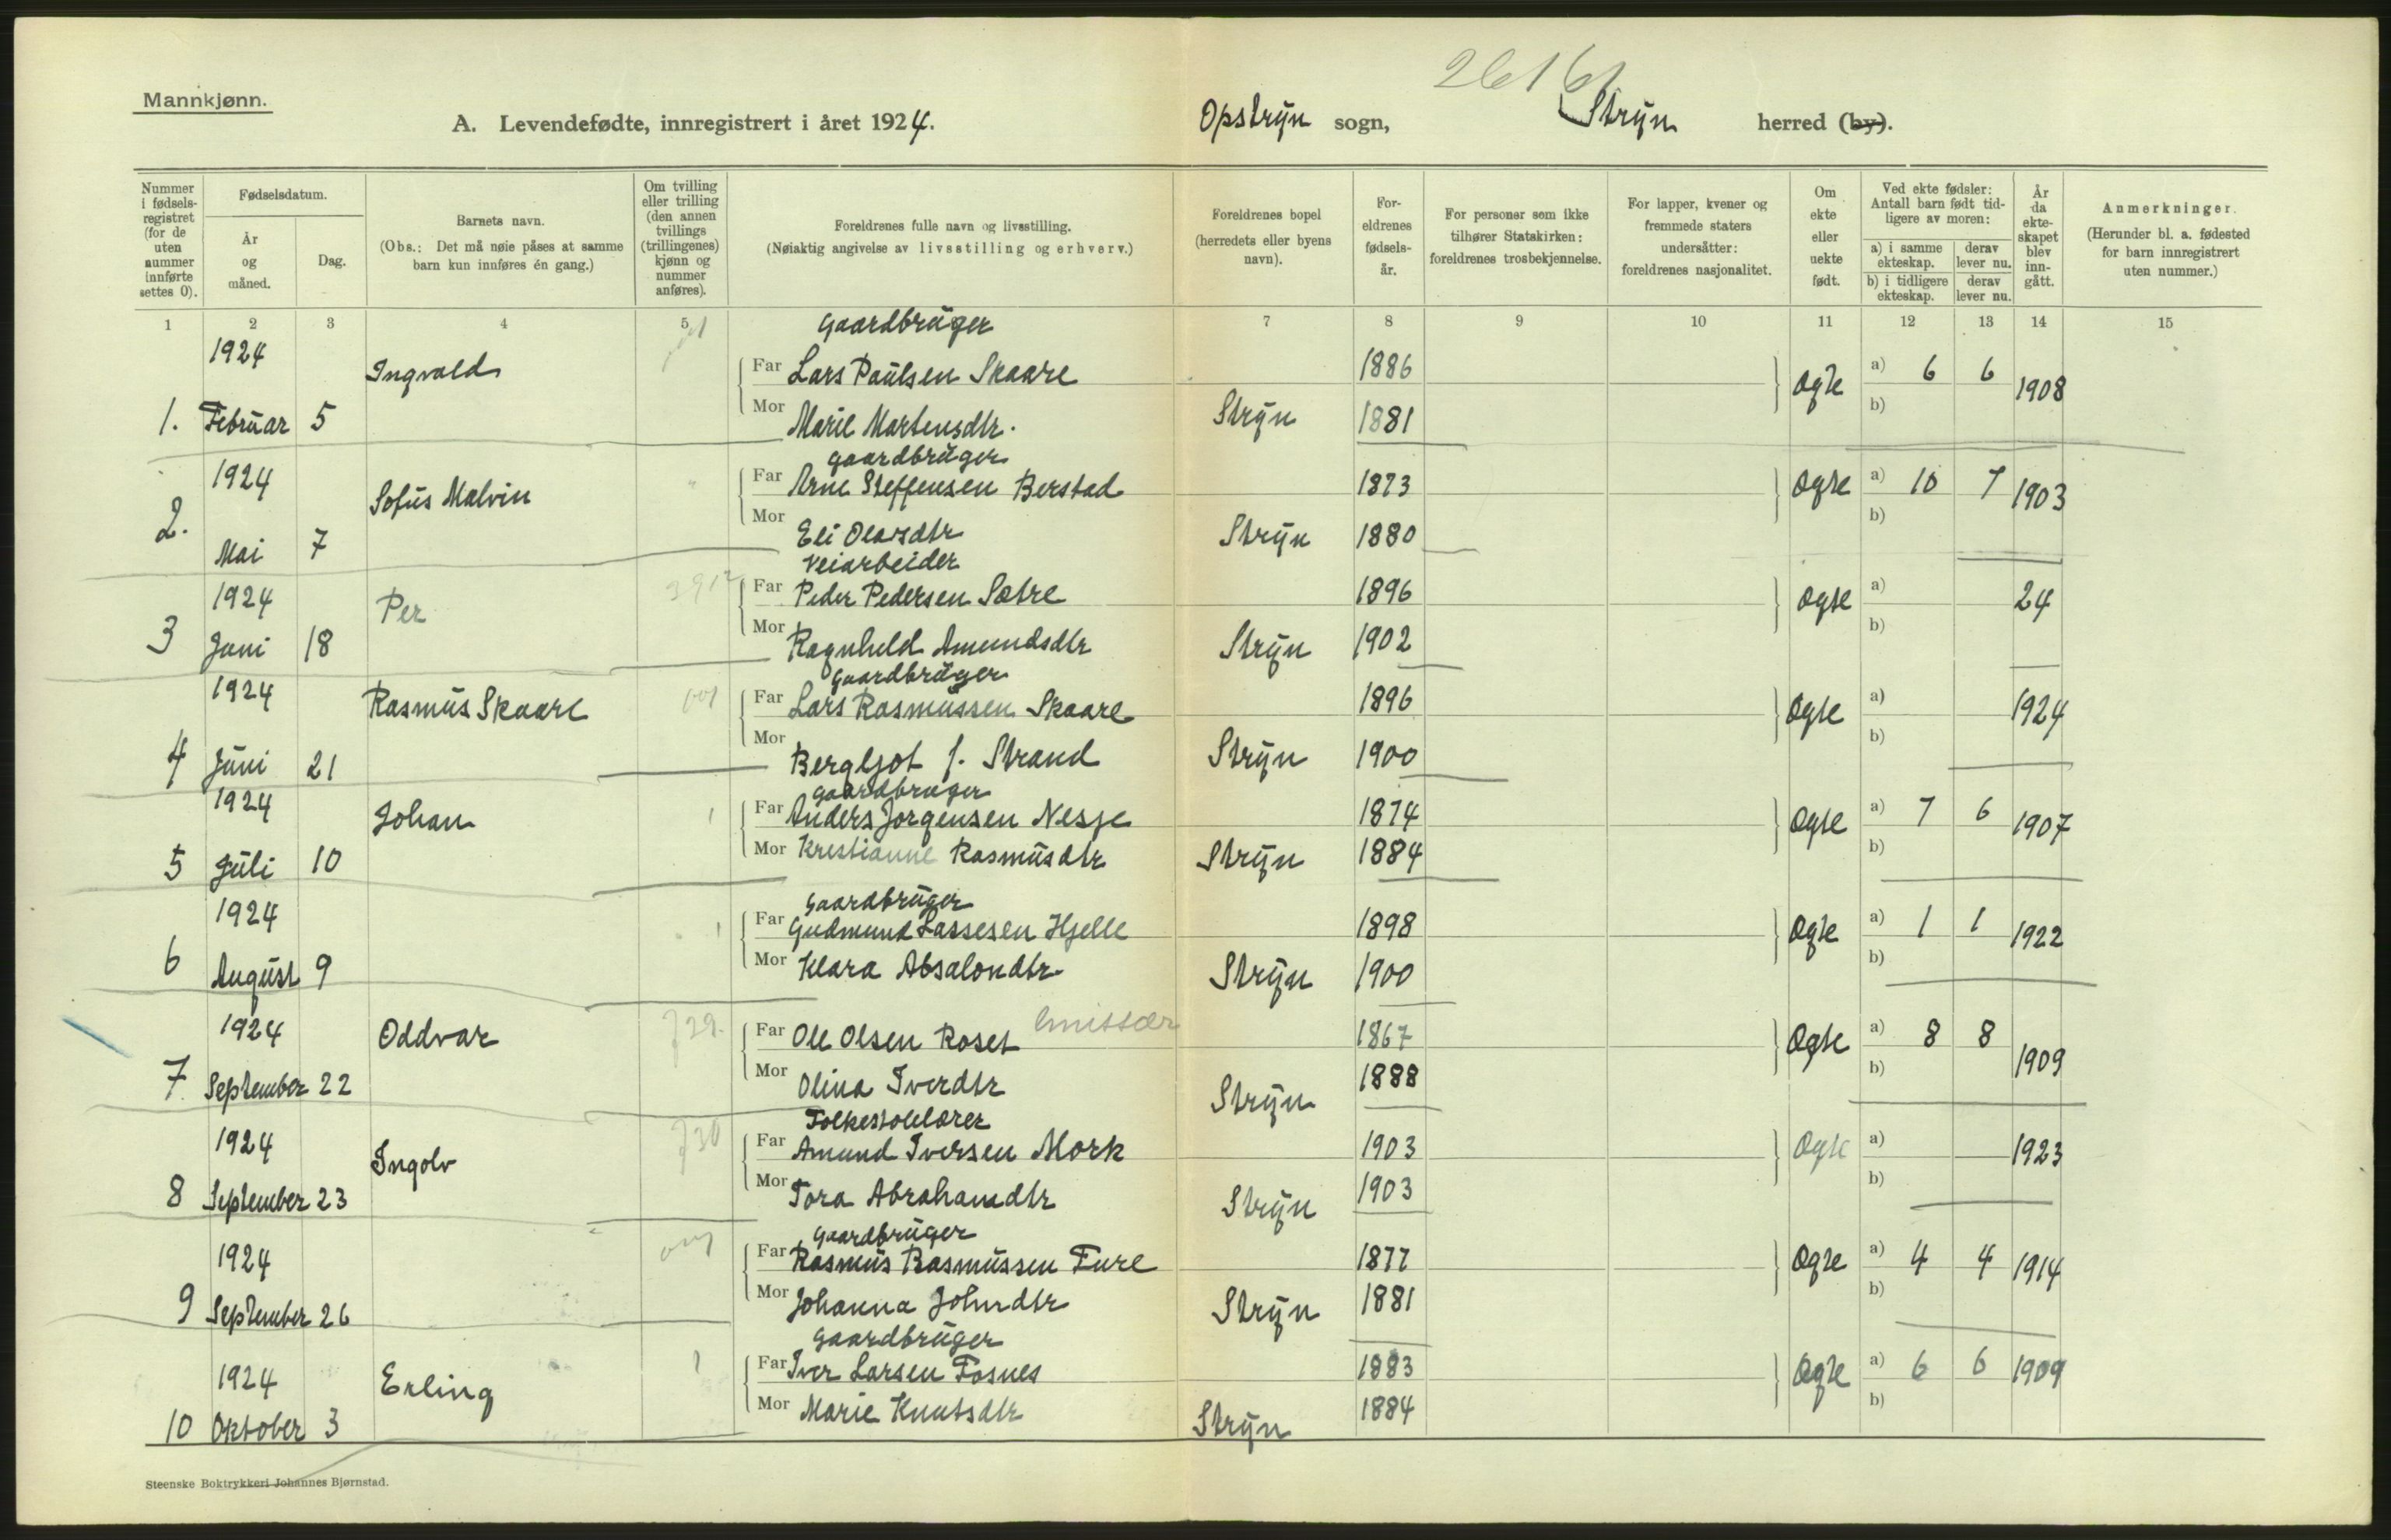 Mannkjønn.
2616
A. Levendefødte, innregistrert i året 1924.
Opstryn sogn, Stryn herred (by).
Nummer i fødsels-registret (for de uten nummer innførte settes 0).
Fødselsdatum.
År og måned.
Dag.
Barnets navn.
(Obs.: Det må nøie påses at samme barn kun innføres én gang.)
Om tvilling eller trilling (den annen tvillings (trillingenes) kjønn og nummer anføres).
Foreldrenes fulle navn og livsstilling.
(Nøiaktig angivelse av livsstilling og erhverv.)
Foreldrenes bopel (herredets eller byens navn).
For-eldrenes fødsels-år.
For personer som ikke tilhører Statskirken: foreldrenes trosbekjennelse.
For lapper, kvener og fremmede staters undersåtter: foreldrenes nasjonalitet.
Om ekte eller uekte født.
Ved ekte fødsler: Antall barn født tid-ligere av moren:
a) i samme ekteskap. derav lever nu.
b) i tidligere ekteskap. derav lever nu.
År da ekte-skapet blev inn-gått.
Anmerkninger.
(Herunder bl. a. fødested for barn innregistrert uten nummer.)
1 2 3 4 5 7 8 9 10 11 12 13 14 15
Gaardbrüger
1924 Ingvald Far Lars Paulsen Skaare 1886 Ogte a) 6 6 1908
1. Februar 5 Mor Marie Martensdtr. Stryn 1881 b)
gaardbrüger
1924 Sofus Malvin Far Arne Steffensen Berstad 1873 Ogte a) 10 7 1903
2. Mai 7 Mor Eli Olavsdtr Stryn 1880 b)
Veiarbeider
1924 Per Far Peder Pedersen Sætre 1896 Ogte a) 24
3 Juni 18 Mor Ragnhild Amundsdtr Stryn 1902 b)
Gaardbrüger
1924 Rasmus Skaare Far Lars Rasmussen Skaare 1896 Ogte a) 1924
4 Juni 21 Mor Bergljot f. Strand Stryn 1900 b)
gaardbruger
1924 Johan Far Anders Jorgensen Nesje 1874 Ogte a) 7 6 1907
5 Juli 10 Mor Kristianne Rasmusdtr Stryn 1884 b)
Gaardbrüger
1924 Far Gudmund Lassesen Hjelle 1898 Ogte a) 1 1 1922
6 August 9 Mor Klara Absalondtr. Stryn 1900 b)
1924 Oddvar Far Ole Olsen Roset Emissær 1867 Ogte a) 8 8 1909
7. September 22 Mor Olina Iverdtr Stryn 1888 b)
Folkeskolelærer
1924 Ingolv Far Amund Iversen Mork 1903 Ogte a) 1923
8 September 23 Mor Tora Abrahamdtr Stryn 1903 b)
Gaardbrüger
1924 Far Rasmus Rasmussen Fure 1877 Ogte a) 4 4 1914
9 September 26 Mor Johanna Johndtr Stryn 1881 b)
Gaardbrüger
1924 Erling Far Iver Larsen Fosnes 1883 Ogte a) 6 6 1909
10 Oktober 3 Mor Marie Knutsdtr Stryn 1884 b)
Steenske Boktrykkeri Johannes Bjørnstad.